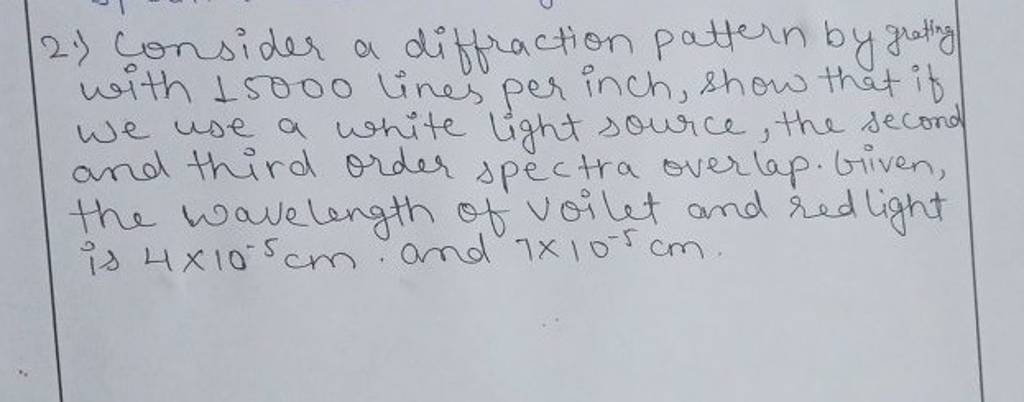 2.) Consider a diffraction pattern by grating
with 15000 lines per inch, show that if
we use a white light source, the second
and third order spectra overlap. Giiven,
the wavelength of voilet and red light
is 4×10⁻⁵ cm. and 7×10⁻⁵ cm.